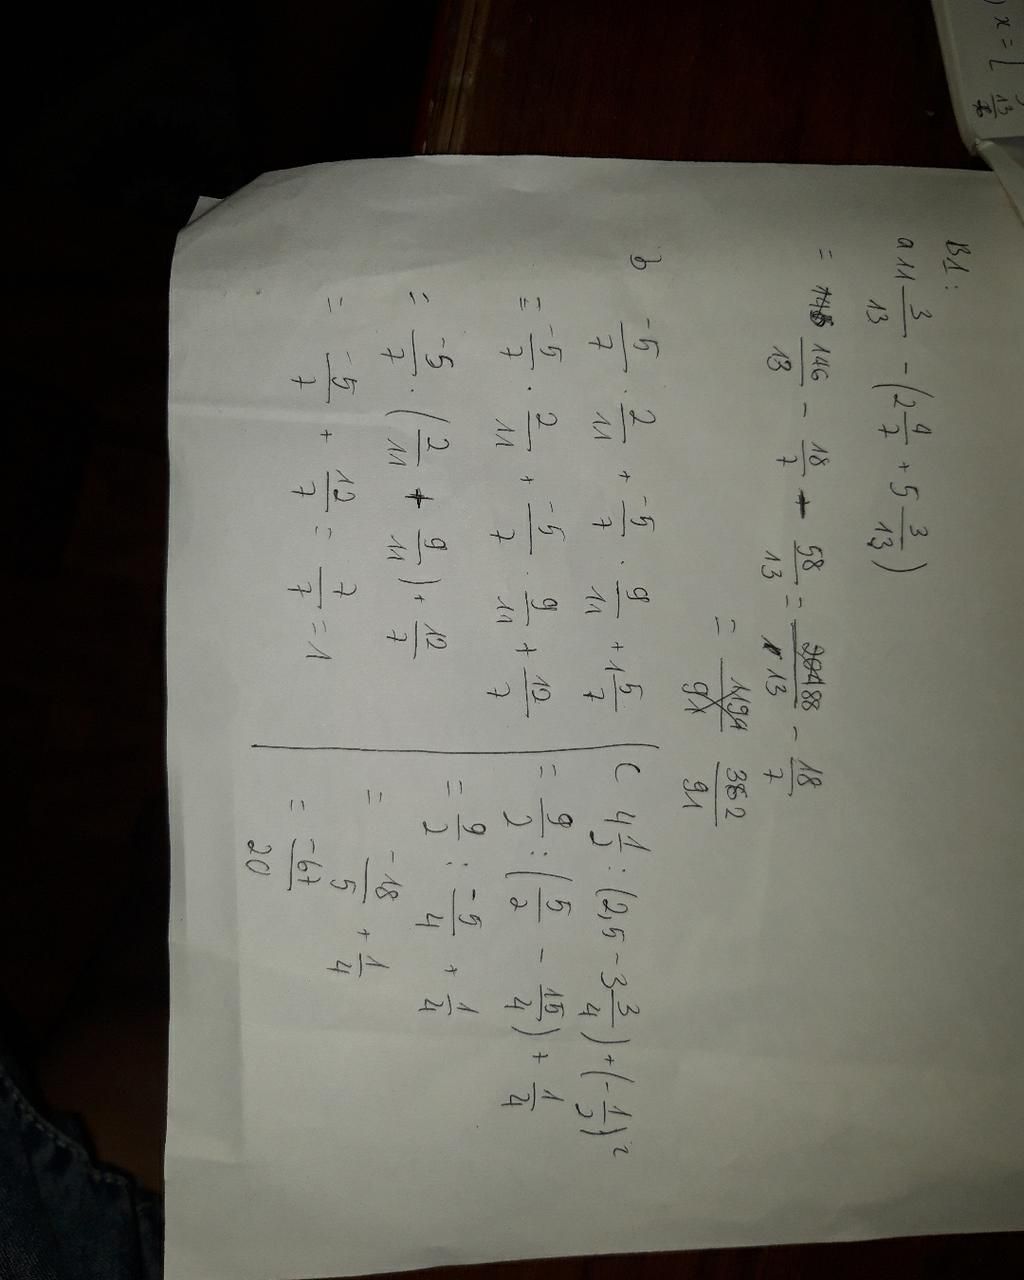 B1:
a 11 3/13 - (2 4/7 + 5 3/13)
= 146/13 - 18/7 + 58/13 = 88/13 - 18/7
= 382/91
b -5/7 . 2/11 + -5/7 . 9/11 + 1 5/7
= -5/7 . 2/11 + -5/7 . 9/11 + 12/7
= -5/7 . (2/11 + 9/11) + 12/7
= -5/7 + 12/7 = 7/7 = 1
c 4 1/2 : (2,5 - 3 3/4) + (-1/2)²
= 9/2 : (5/2 - 15/4) + 1/4
= 9/2 : -5/4 + 1/4
= -18/5 + 1/4
= -67/20
) x = [
13